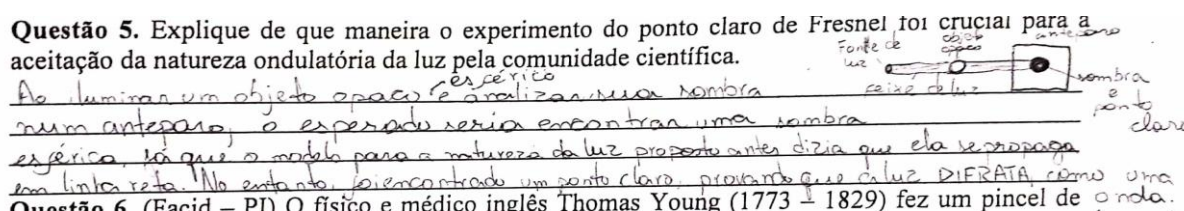 Questão 5. Explique de que maneira o experimento do ponto claro de Fresnel foi crucial para a
aceitação da natureza ondulatória da luz pela comunidade científica.
Fonte de luz
objeto opaco
anteparo
feixe de luz
sombra e ponto claro
esférico
Ao iluminar um objeto opaco e analizar sua sombra
num anteparo, o esperado seria encontrar uma sombra
esférica, já que o modelo para a natureza da luz proposto antes dizia que ela se propaga
em linha reta. No entanto, foi encontrado um ponto claro, provando que a luz DIFRATA, como uma
onda.
Questão 6. (Facid – PI) O físico e médico inglês Thomas Young (1773 – 1829) fez um pincel de